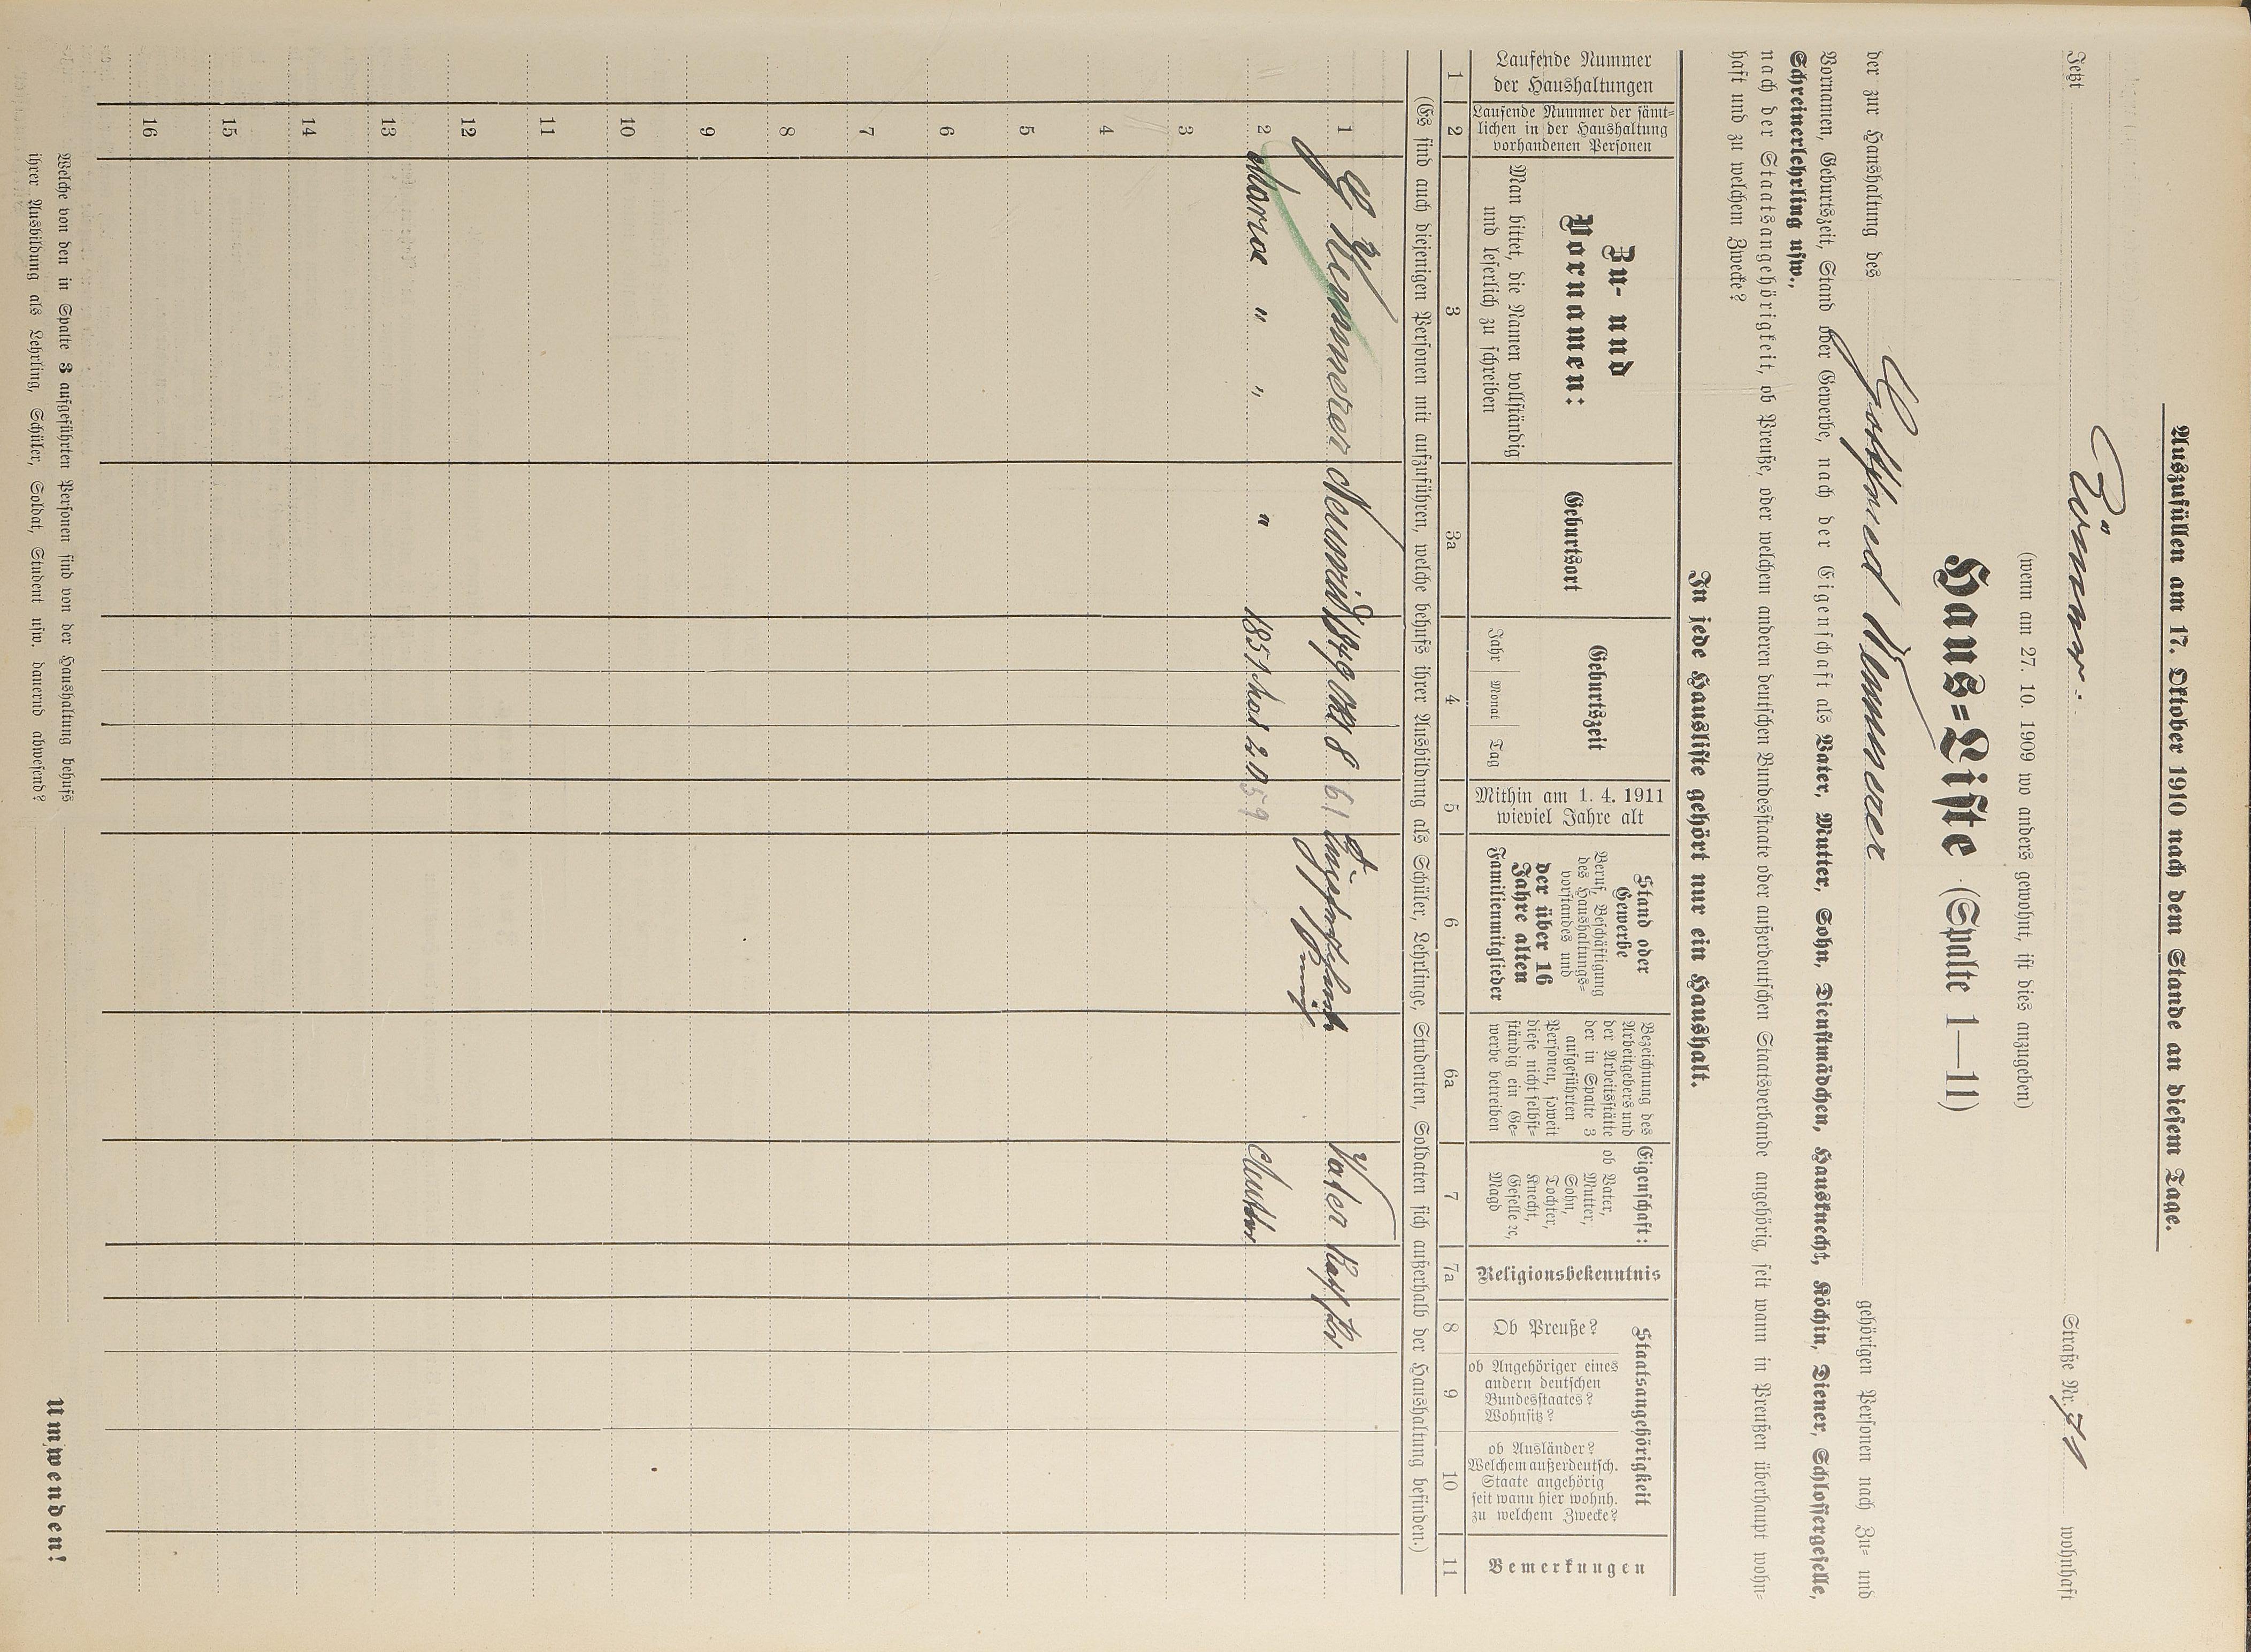 Auszufüllen am 17. Oktober 1910 nach dem Stande an diesem Tage.
Jetzt Straße Nr. 71 wohnhaft
(wenn am 27. 10. 1909 wo anders gewohnt, ist dies anzugeben)
Haus=Liste (Spalte 1—11)
der zur Haushaltung des Gottfried Kemmerer gehörigen Personen nach Zu= und
Vornamen, Geburtszeit, Stand oder Gewerbe, nach der Eigenschaft als Vater, Mutter, Sohn, Dienstmädchen, Hausknecht, Köchin, Diener, Schlossergeselle,
Schreinerlehrling usw.,
nach der Staatsangehörigkeit, ob Preuße, oder welchen anderen deutschen Bundesstaate oder außerdeutschen Staatsverbande angehörig, seit wann in Preußen überhaupt wohn=
haft und zu welchem Zwecke?
In jede Hausliste gehört nur ein Haushalt.
Laufende Nummer
der Haushaltungen
Laufende Nummer der sämt=
lichen in der Haushaltung
vorhandenen Personen
Zu- und
Vornamen:
Man bittet, die Namen vollständig
und leserlich zu schreiben
Geburtsort
Geburtszeit
Jahr Monat Tag
Mithin am 1. 4. 1911
wieviel Jahre alt
Stand oder
Gewerbe
Beruf, Beschäftigung
des Haushaltungs=
vorstandes und
der über 16
Jahre alten
Familienmitglieder
Bezeichnung des
Arbeitgebers und
der Arbeitsstätte
der in Spalte 3
aufgeführten
Personen, soweit
diese nicht selbst=
ständig ein Ge=
werbe betreiben
Eigenschaft:
ob Vater,
Mutter,
Sohn,
Tochter,
Knecht,
Geselle 2c,
Magd
Religionsbekenntnis
Staatsangehörigkeit
Ob Preuße?
ob Angehöriger eines
andern deutschen
Bundesstaates?
Wohnsitz?
ob Ausländer?
Welchem außerdeutsch.
Staate angehörig
seit wann hier wohnh.
zu welchem Zwecke?
Bemerkungen
1 2 3 3a 4 5 6 6a 7 7a 8 9 10 11
(Es sind auch diejenigen Personen mit aufzuführen, welche behufs ihrer Ausbildung als Schüler, Lehrlinge, Studenten, Soldaten sich außerhalb der Haushaltung befinden.)
1 G Kemmerer Neuwied 1849 Okt 8 61 Vater Kath
2 Maria " " " 1851 20 59 Mutter
3
4
5
6
7
8
9
10
11
12
13
14
15
16
Welche von den in Spalte 3 aufgeführten Personen sind von der Haushaltung behufs
ihrer Ausbildung als Lehrling, Schüler, Soldat, Student usw. dauernd abwesend?
Umwenden!